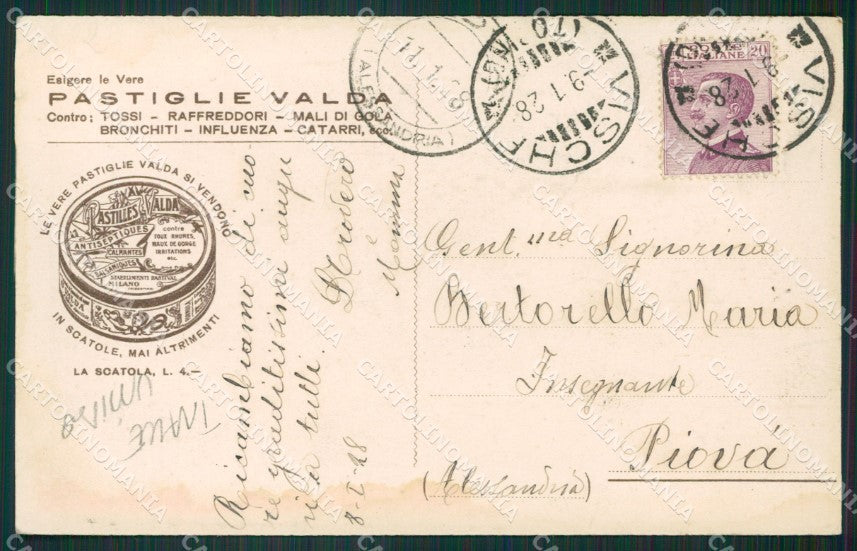 Esigere le Vere
PASTIGLIE VALDA
Contro: TOSSI - RAFFREDDORI - MALI DI GOLA
BRONCHITI - INFLUENZA - CATARRI, ecc.
LE VERE PASTIGLIE VALDA SI VENDONO
PASTILLES VALDA
ANTISEPTIQUES
CALMANTES
BALSAMIQUES
contre
TOUX RHUMES,
MAUX DE GORGE,
IRRITATIONS
etc.
MILANO
IN SCATOLE, MAI ALTRIMENTI
LA SCATOLA, L. 4.-
Ricambiamo di cuo
re graditissimi augu
ri a tutti.
8-I-28
e
Mamma
(ALESSANDRIA)
11.1.28
VISCHE
(TORINO)
-9.1.28
VISCHE
20
Gent.ma Signorina
Bertorello Maria
Insegnante
Piová
(Alessandria)
CARTOLINOMANIA